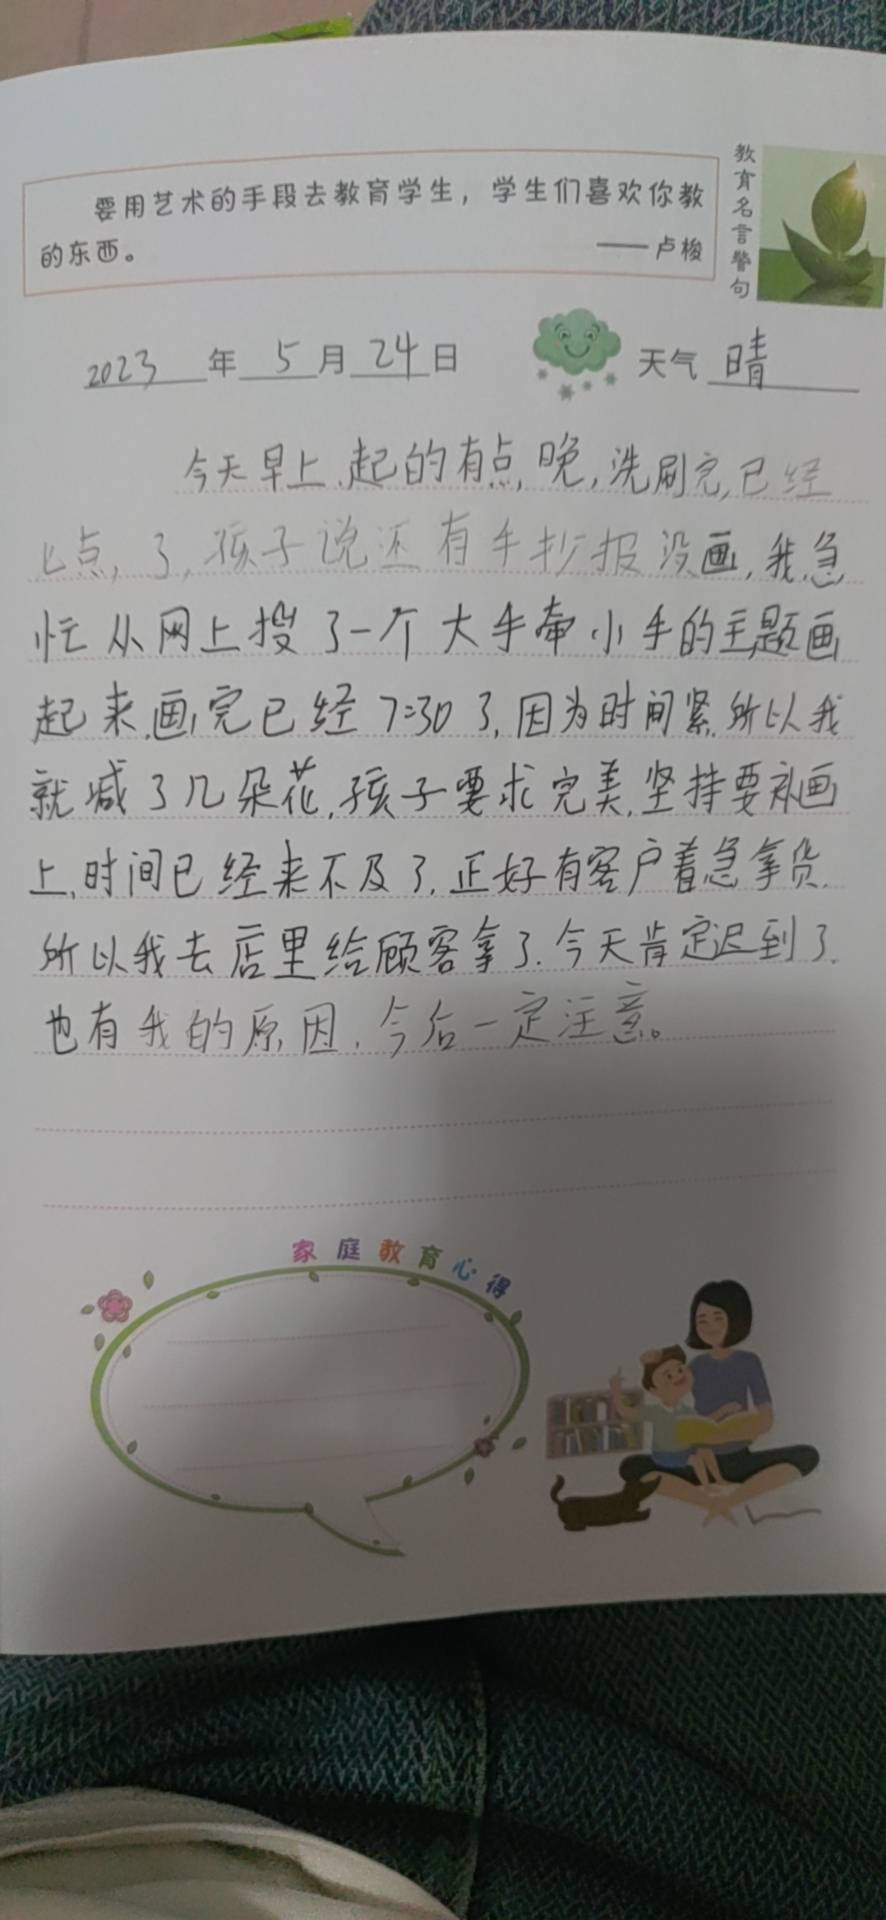 要用艺术的手段去教育学生，学生们喜欢你教
的东西。 ——卢梭
教育名言警句
2023年5月24日 天气 晴
今天早上,起的有点晚,洗刷完,已经
七点了,孩子说还有手抄报没画,我急
忙从网上搜了一个大手牵小手的主题画
起来,画完已经7:30了,因为时间紧,所以我
就减了几朵花,孩子要求完美,坚持要补画
上,时间已经来不及了,正好有客户着急拿货,
所以我去店里给顾客拿了.今天肯定迟到了,
也有我的原因,今后一定注意。
家庭教育心得